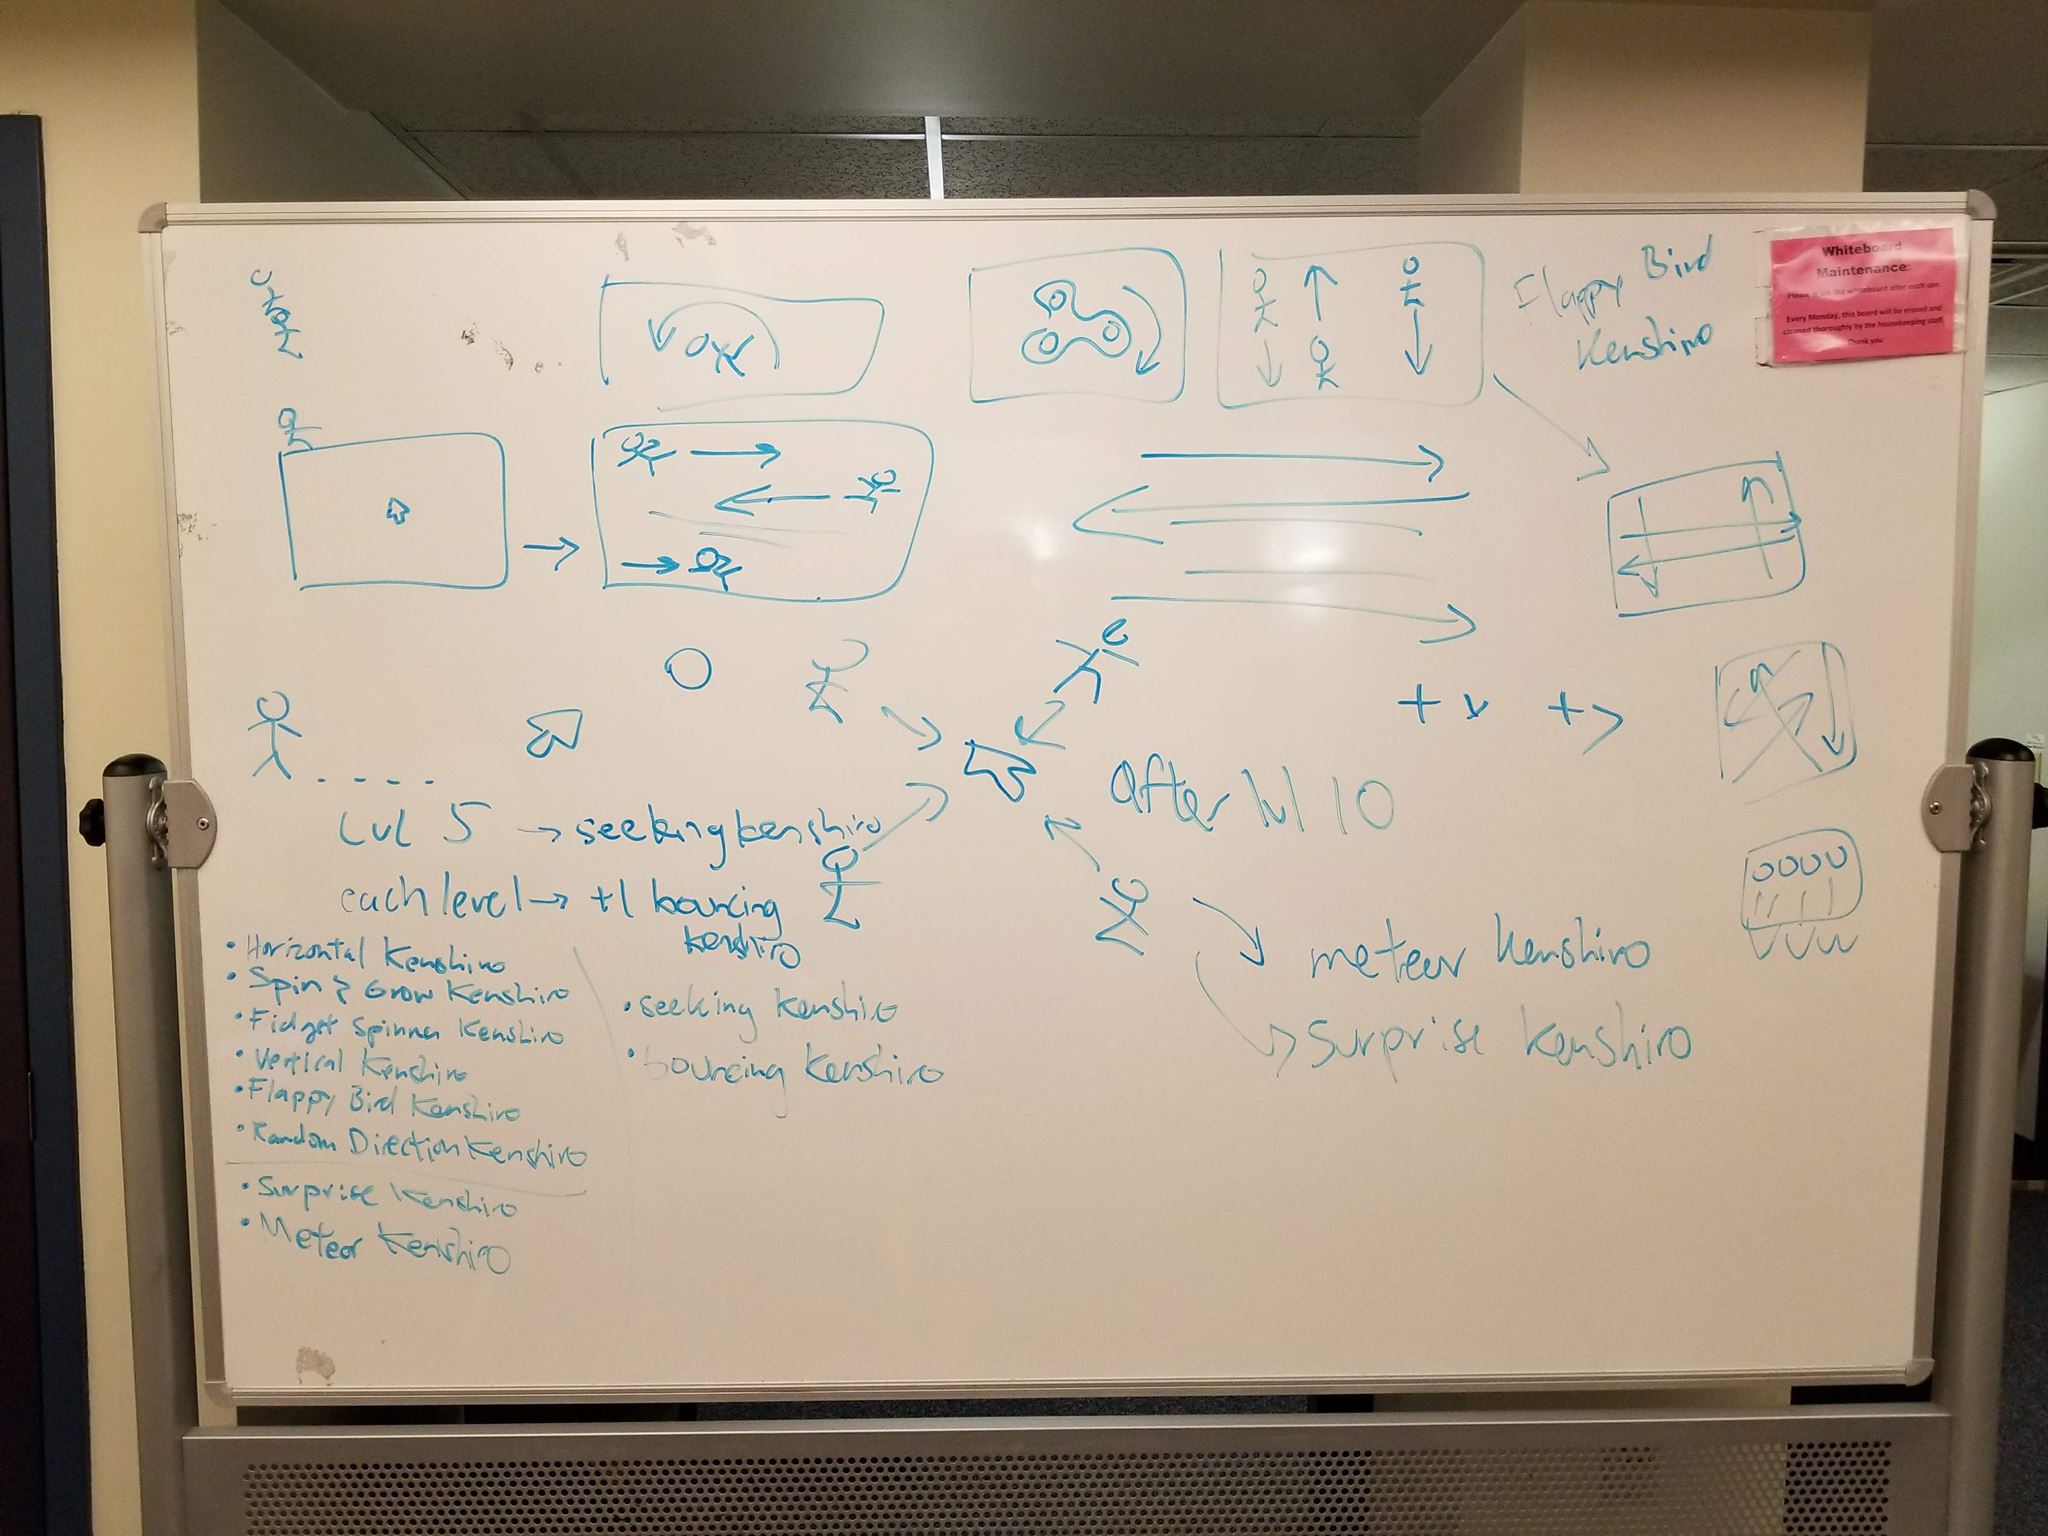 Flappy Bird
Kenshiro
Whiteboard
Maintenance:
the whiteboard after each use.
Every Monday, this board will be erased and
cleaned thoroughly by the housekeeping staff.
Thank you
After lvl 10
Lvl 5 → seeking kenshiro
each level → +1 bouncing
kenshiro
• Horizontal Kenshiro
• Spin & Grow Kenshiro
• Fidget Spinner Kenshiro
• Vertical Kenshiro
• Flappy Bird Kenshiro
• Random Direction Kenshiro
• Surprise Kenshiro
• Meteor Kenshiro
• seeking Kenshiro
• bouncing Kenshiro
meteor Kenshiro
→ surprise Kenshiro